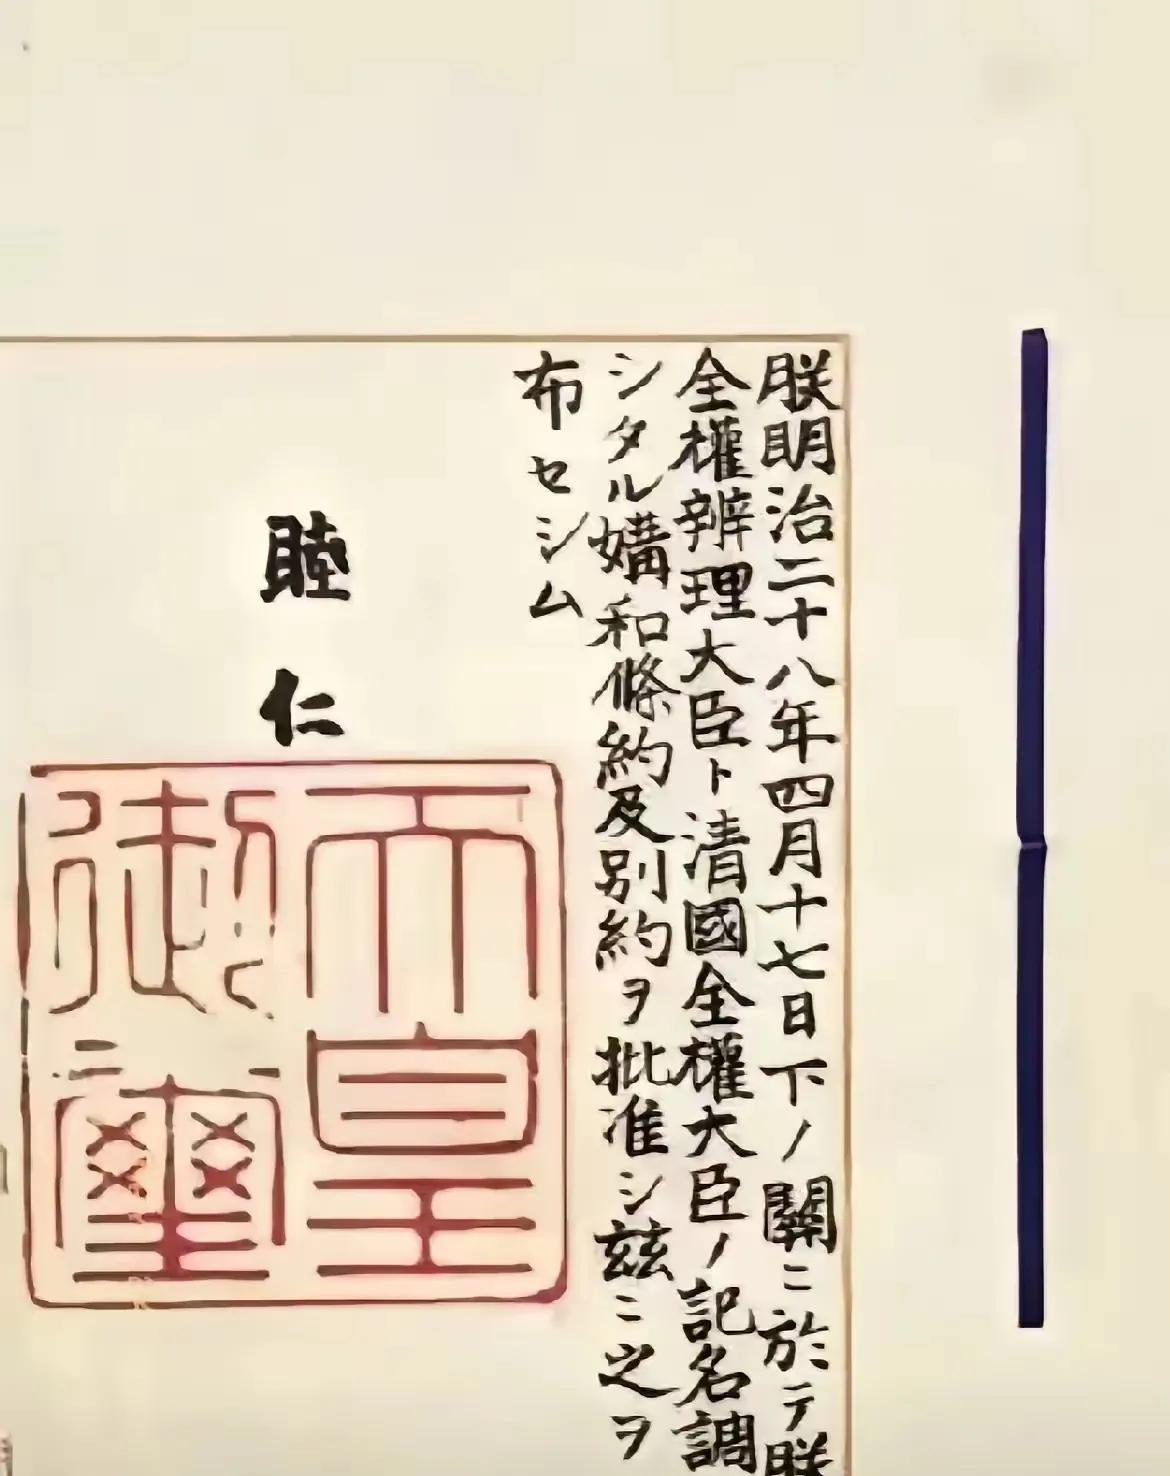 朕明治二十八年四月十七日下ノ關ニ於テ朕
全權辨理大臣ト清國全權大臣ノ記名調
シタル媾和條約及別約ヲ批准シ玆ニ之ヲ
布セシム
睦仁
天皇
御璽